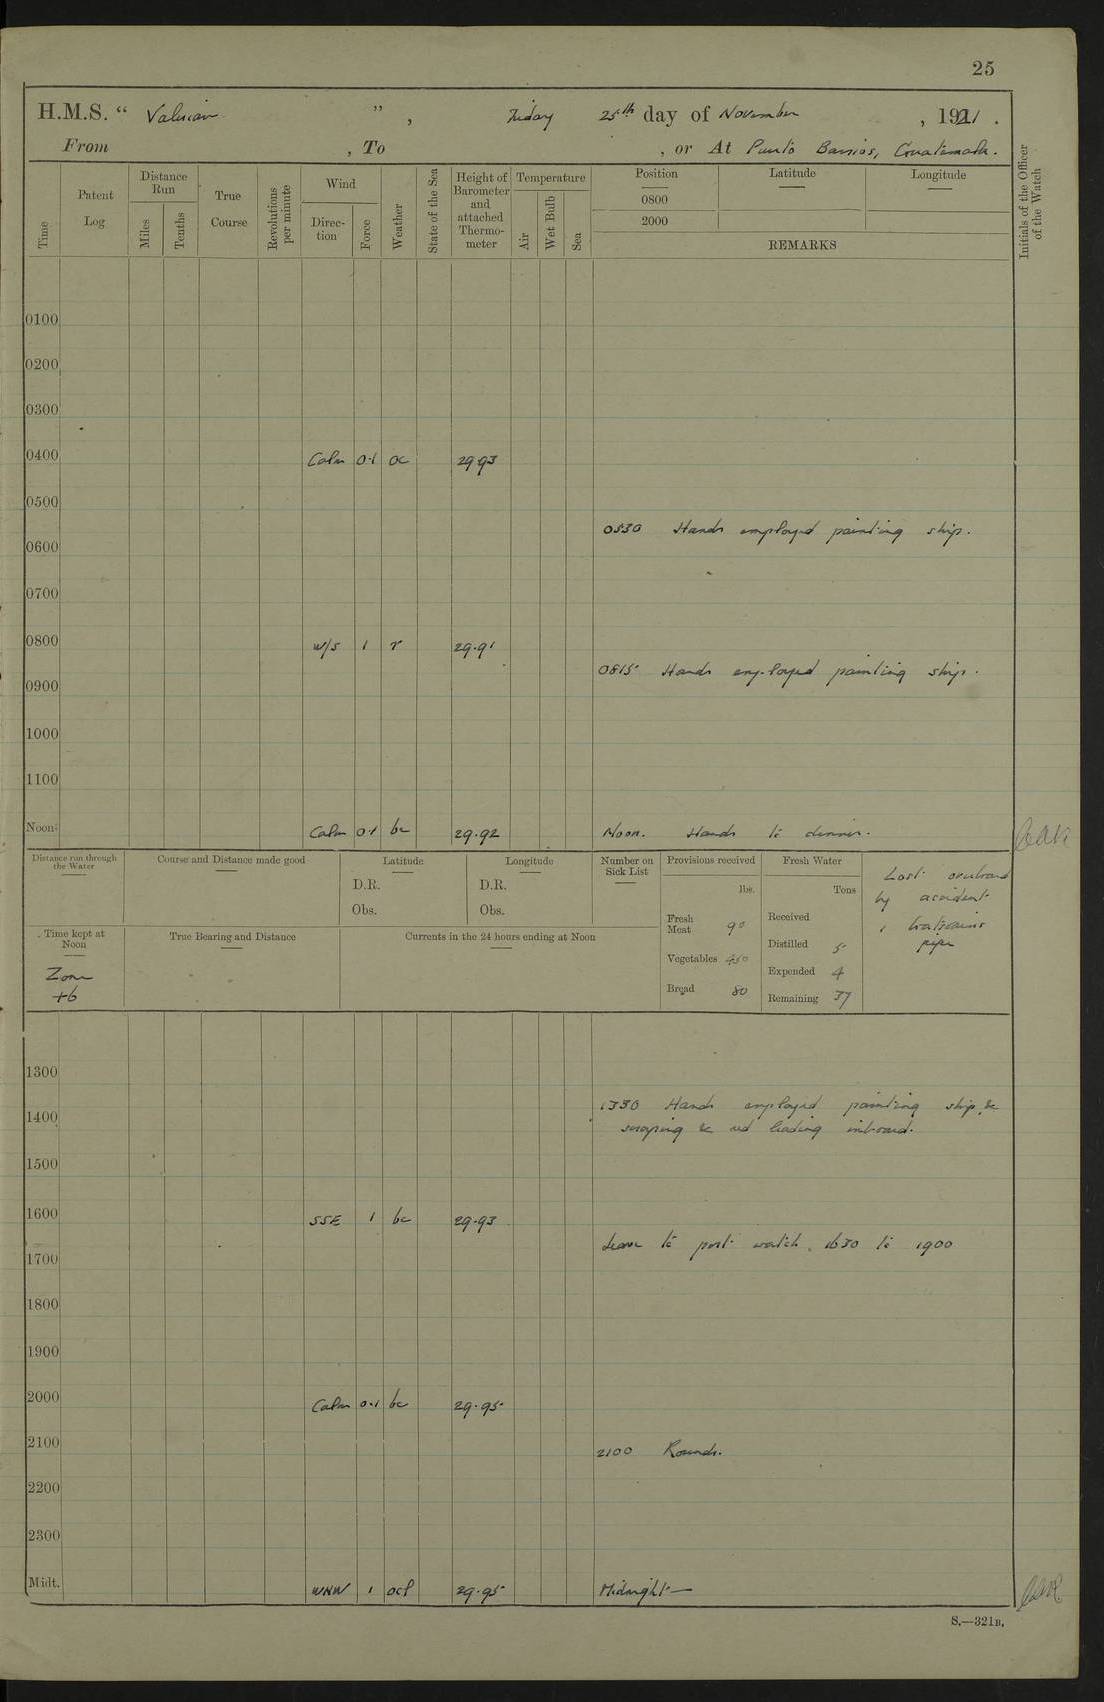 25
H.M.S. " Valerian ", Friday 25th day of November, 1921.
From , To , or At Puerto Barrios, Guatemala.
Time
Patent Log
Distance Run
Miles
Tenths
True Course
Revolutions per minute
Wind
Direction
Force
Weather
State of the Sea
Height of Barometer and attached Thermometer
Temperature
Air
Wet Bulb
Sea
Position
Latitude
Longitude
0800
2000
REMARKS
Initials of the Officer of the Watch
0100
0200
0300
0400 Calm 0·1 oc 29·93
0500
0530 Hands employed painting ship.
0600
0700
0800 W/S 1 r 29·91
0815 Hands employed painting ship.
0900
1000
1100
Noon Calm 0·1 bc 29·92 Noon. Hands to dinner.
Distance run through the Water
Course and Distance made good
Latitude
D.R.
Obs.
Longitude
D.R.
Obs.
Number on Sick List
Provisions received
lbs.
Fresh Meat 90
Vegetables 450
Bread 80
Fresh Water
Tons
Received
Distilled 5
Expended 4
Remaining 37
Lost overboard
by accident
1 boatswains
pipe
Time kept at Noon
Zone
+6
True Bearing and Distance
Currents in the 24 hours ending at Noon
1300
1330 Hands employed painting ship, &
scraping & red leading inboard.
1400
1500
1600 SSE 1 bc 29·93
Leave to port watch. 1630 to 1900
1700
1800
1900
2000 Calm 0·1 bc 29·95
2100 2100 Rounds.
2200
2300
Midt. WNW 1 ocl 29·95 Midnight—
S.—321B.